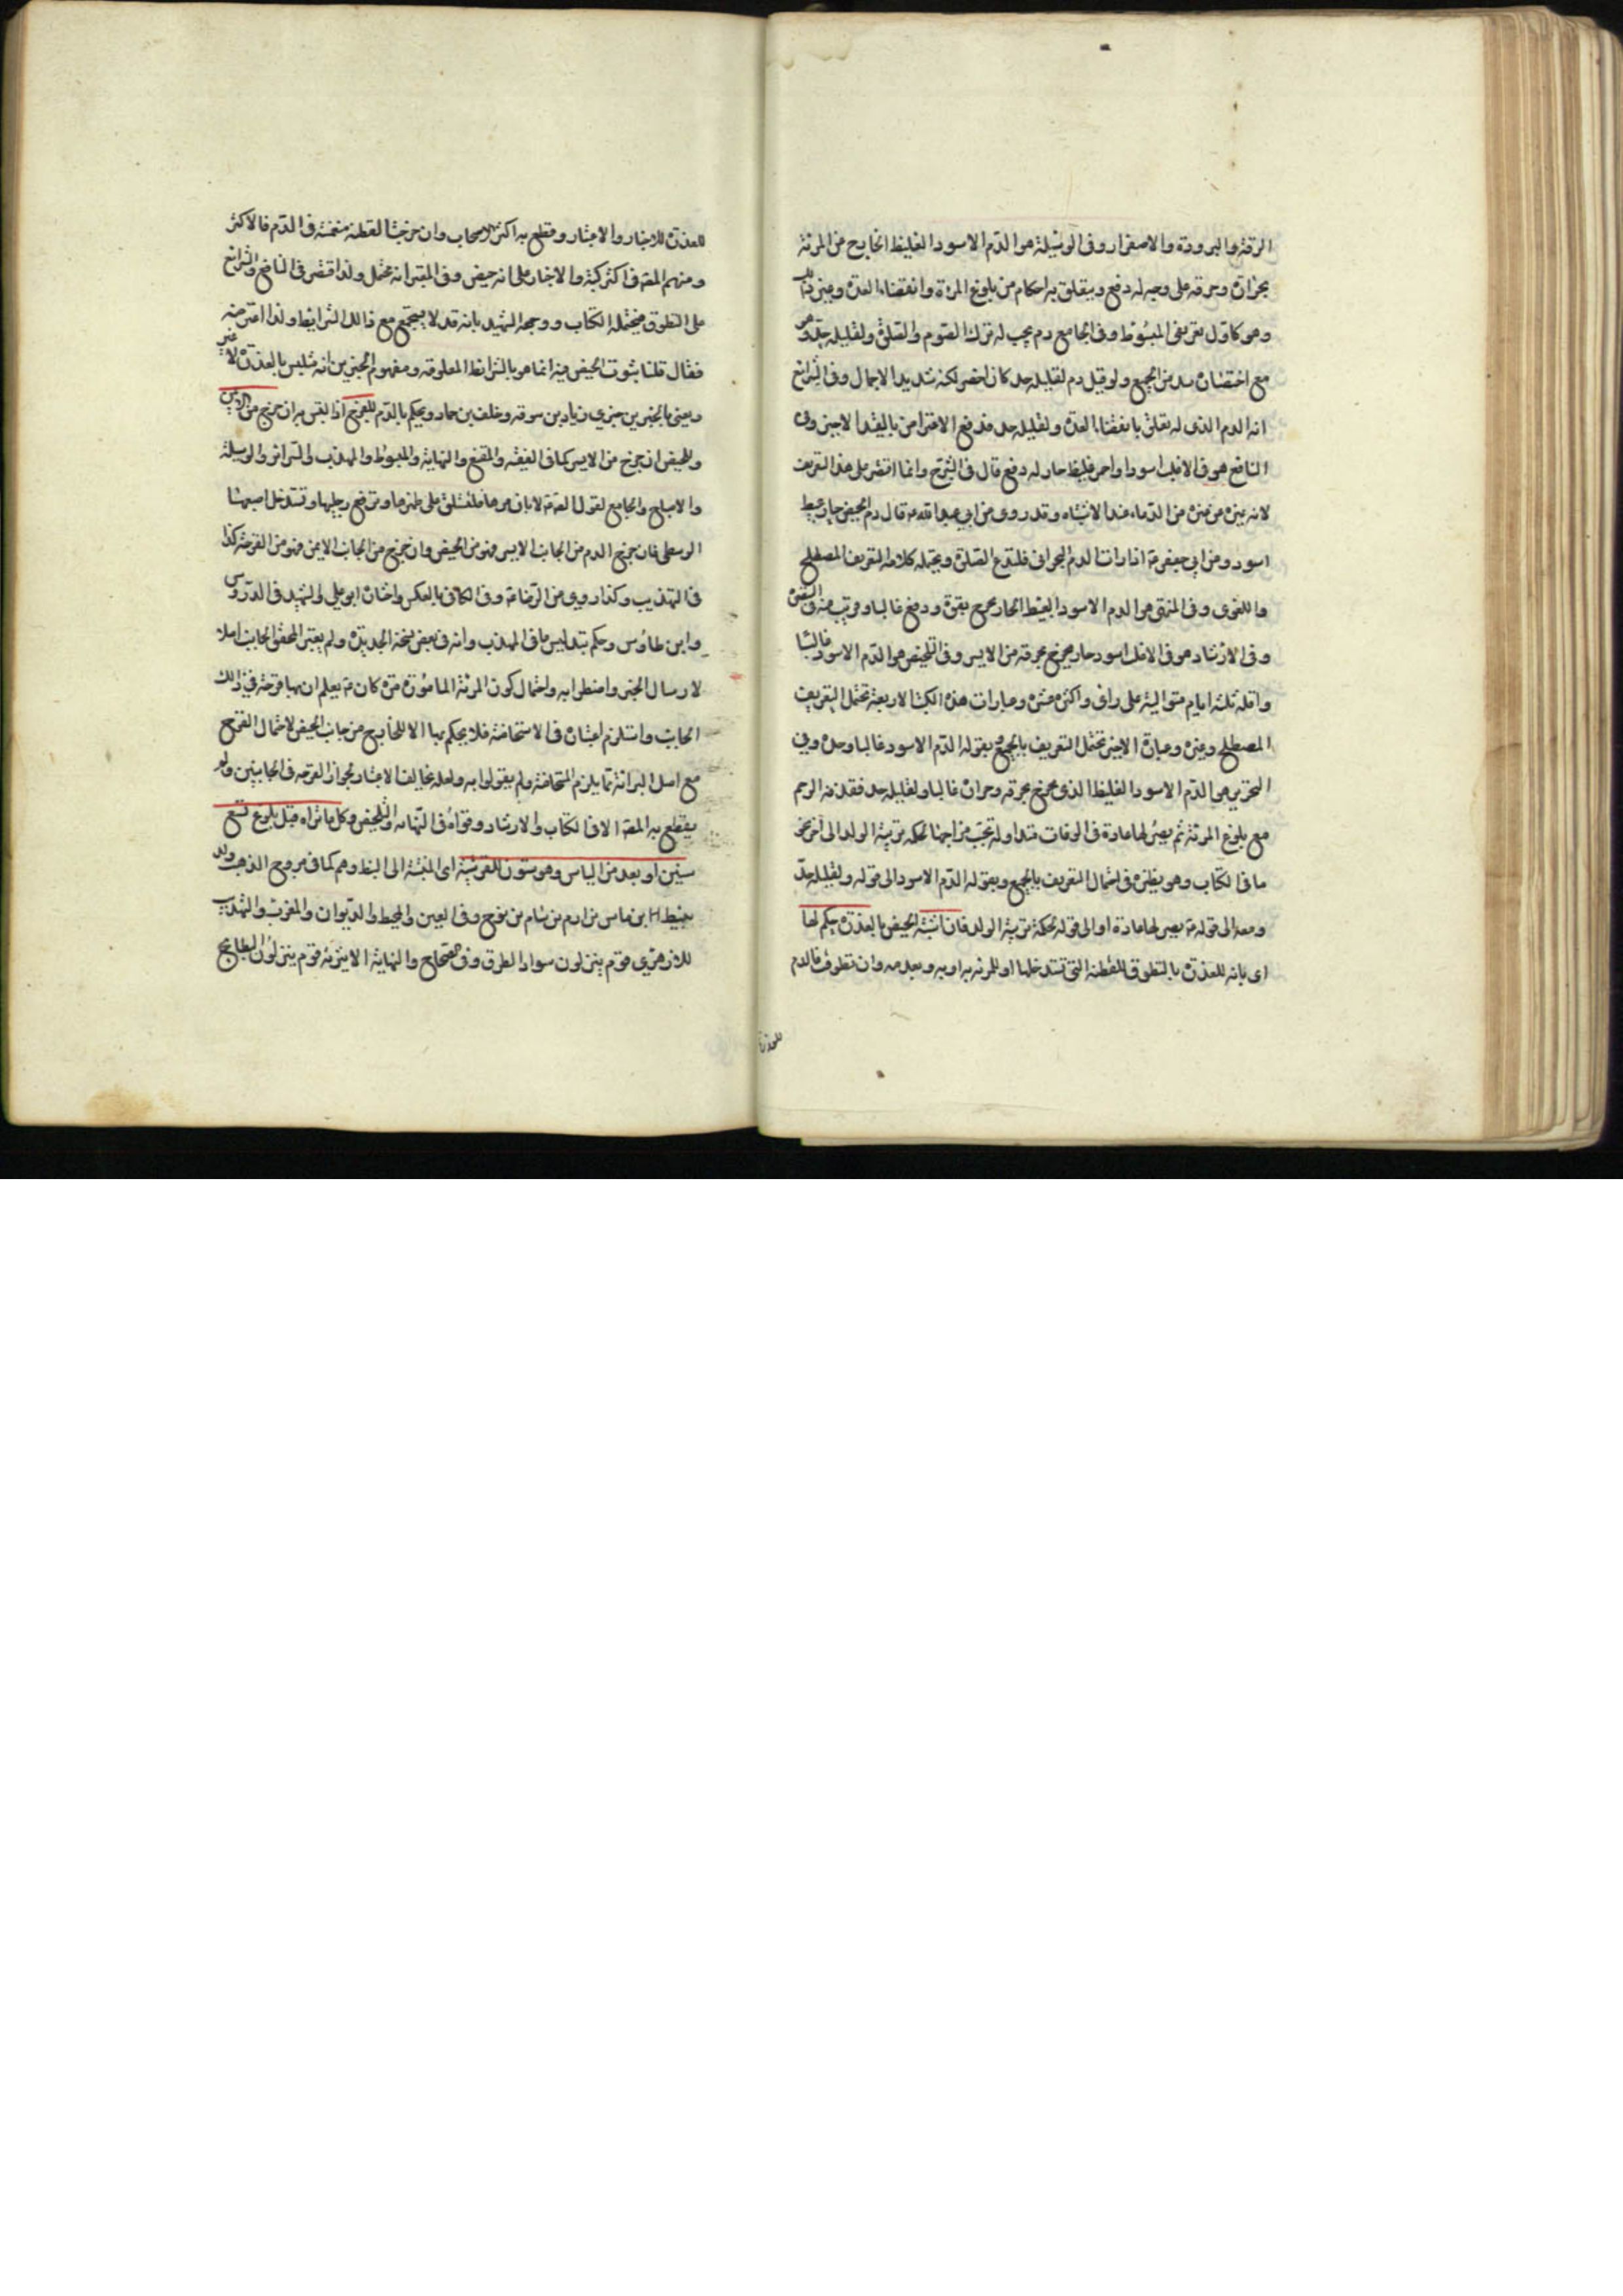 الرقة والبرودة والاصفرار وفى الوسيلة هو الدّم الاسود الغليظ الخارج من المرئة
بحرارة وحرقة على وجه له دفع ويتعلق به احكام من بلوغ المرئة وانقضاء العدة وغير ذلك
وهو كاول تعريفى المبسوط وفى الجامع دم يجب له ترك الصوم والصلوة ولقليله حدّ وهو
مع اختصاره سد من الجميع ولو قيل دم لقليله حد كان اخصر لكنه شديد الاجمال وفى الشرايع
انه الدم الذى له تعلق بانقضاء العدة ولقليله حد فدفع الاعتراض بالقيد الاخير وفى
النافع هو فى الاغلب اسود او احمر غليظ حار له دفع قال فى الشرح وانما اقتصر على هذا التعريف
لانه يميزه من غيره من الدماء عند الاشتباه وقد روى عن ابي عبد الله ع قال دم الحيض حار عبيط
اسود وعن ابي جعفر ع اذا رات الدم البحرانى فلتدع الصلوة ويحتمله كلامه التعريف المصطلح
واللغوى وفى المنتهى هو الدم الاسود العبيط الحار يخرج بقوة ودفع غالبا وقريب منه فى السرائر
وفى الارشاد هو فى الاغلب اسود حار يخرج بحرقة من الايسر وفى التلخيص هو الدّم الاسود غالبا
واقله ثلثة ايام متوالية على راى واكثره عشرة وعبارات هذه الكتب الاربعة تحتمل التعريف
المصطلح وغيره وعبارة الاخير تحتمل التعريف بالجميع وبقوله الدّم الاسود غالبا وحده وفي
التحرير هو الدّم الاسود الغليظ الذى يخرج بحرقة وحرارة غالبا ولقليله حد فقذفه الرحم
مع بلوغ المرئة ثم يصير لها عادة فى اوقات متداولة بحسب مزاجها لحكمة تربية الولد الى آخر نحو
ما فى الكتاب وهو نظيره فى احتمال التعريف بالجميع وبقوله الدّم الاسود الى قوله ولقليله حدّ
ومعه الى قوله ثم يصير لها عادة او الى قوله لحكمة تربية الولد فان اشتبه الحيض بالعذرة حكم لها
اى بانه للعذرة بالتطوق للقطنة التى تستدخلها او للمرئة به اوبه وبعدمه وان تطوق فالدم
للعذرة
للعذرة للاخبار والاعتبار وقطع به اكثر الاصحاب وان خرجت القطنة منغمسة فى الدّم فالاكثر
ومنهم المصنف فى اكثر كتبه والاخبار على انه حيض وفى المعتبر انه محتمل ولذا اقتصر فى النافع والشرايع
على التطوق فيحتمله الكتاب ووجهه الشهيد بانه قد لا يستجمع مع ذلك الشرايط ولذا اعترضه
فقال قلنا بثبوت الحيض فيه انما هو بالشرائط المعلومة ومفهوم الخبرين انه ملتبس بالعذرة لا غير
ويعنى بالخبرين خبرى زياد بن سوقه وخلف بن حماد ويحكم بالدّم للقرح اذا التبس به ان خرج من الايمن
وللحيض ان خرج من الايسر كما فى الفقيه والمقنع والنهاية والمبسوط والمهذب والسرائر والوسيلة
والاصباح والجامع لقول الصادق ع لابان مرها فلتستلق على ظهرها وترفع رجليها وتستدخل اصبعها
الوسطى فان خرج الدم من الجانب الايسر فهو من الحيض وان خرج من الجانب الايمن فهو من القرحة كذا
فى التهذيب وكذا روى عن الرضا ع وفى الكافى بالعكس واختاره ابو علي والشهيد فى الدروس
وابن طاوس وحكم بتدليس ما فى المهذب وانه فى بعض نسخه الجديدة ولم يعتبر المحقق الجانب اصلا
لارسال الخبر واضطرابه واحتمال كون المرئة المامورة متن كان ع يعلم ان بها قرحة فى ذلك
الجانب واستلزم اعتباره فى الاستحاضة فلا يحكم بها الا للخارج من جانب الحيض لاحتمال القرح
مع اصل البرائة مما يلزم المتحاضة ولم يقولوا به ولعله يخالف الاعتبار لجواز القرحة فى الجانبين ولم
يقطع به المصنف الا فى الكتاب والارشاد وقواه فى النهاية والتلخيص وكل ما تراه قبل بلوغ تسع
سنين او بعد سن الياس وهو ستون للقرشية اى المنتسبة الى النبط وهم كما فى مروج الذهب ولد
نبيط بن ماس بن ارم بن سام بن نوح وفى العين والمحيط والديوان والمغرب والتهذيب
للازهرى قوم ينزلون سواد العراق وفى الصحاح والنهاية الاثيرية قوم ينزلون البطايح